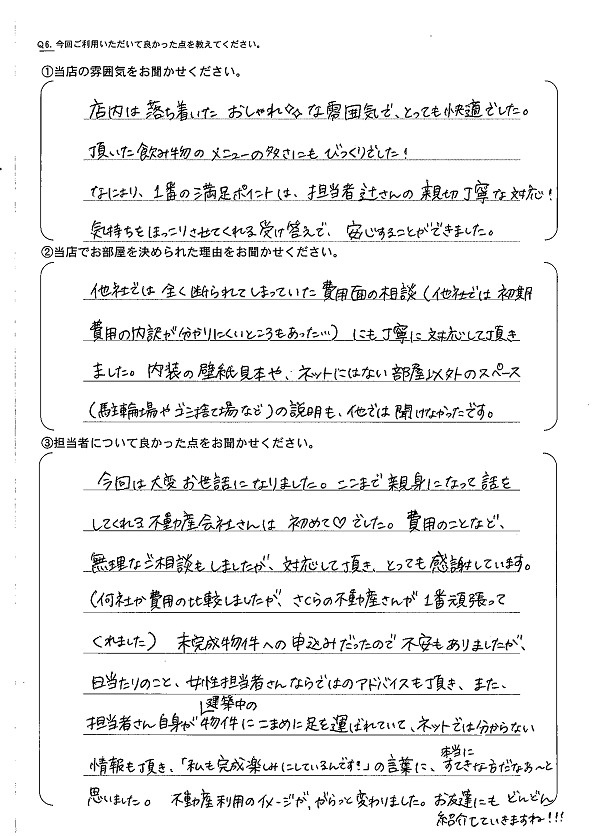 Q6. 今回ご利用いただいて良かった点を教えてください。
①当店の雰囲気をお聞かせください。
店内は落ち着いた おしゃれ◇◇な雰囲気で、とっても快適でした。
頂いた飲み物のメニューの多さにもびっくりでした！
なにより、1番の満足ポイントは、担当者 辻さんの 親切丁寧な対応！
気持ちもほっこりさせてくれる受け答えで、安心することができました。
②当店でお部屋を決められた理由をお聞かせください。
他社では 全く断られてしまっていた 費用面の相談（他社では 初期
費用の内訳が分かりにくいところもあった…）にも丁寧に対応して頂き
ました。内装の壁紙見本や、ネットにはない部屋以外のスペース
（駐輪場やゴミ捨て場など）の説明も、他では聞けなかったです。
③担当者について良かった点をお聞かせください。
今回は大変お世話になりました。ここまで親身になって話を
してくれる不動産会社さんは 初めて♡でした。費用のことなど、
無理なご相談もしましたが、対応して頂き、とっても感謝しています。
（何社か費用の比較しましたが、さくらの不動産さんが1番頑張って
くれました） 未完成物件への申込みだったので不安もありましたが、
日当たりのこと、女性担当者さんならではのアドバイスも頂き、また、
担当者さん自身が建築中の物件にこまめに足を運ばれていて、ネットでは分からない
情報も頂き、「私も完成楽しみにしているんです！」の言葉に、本当にすてきな方だなあ～と
思いました。 不動産利用のイメージが、がらっと変わりました。お友達にも どんどん
紹介していきますね!!!